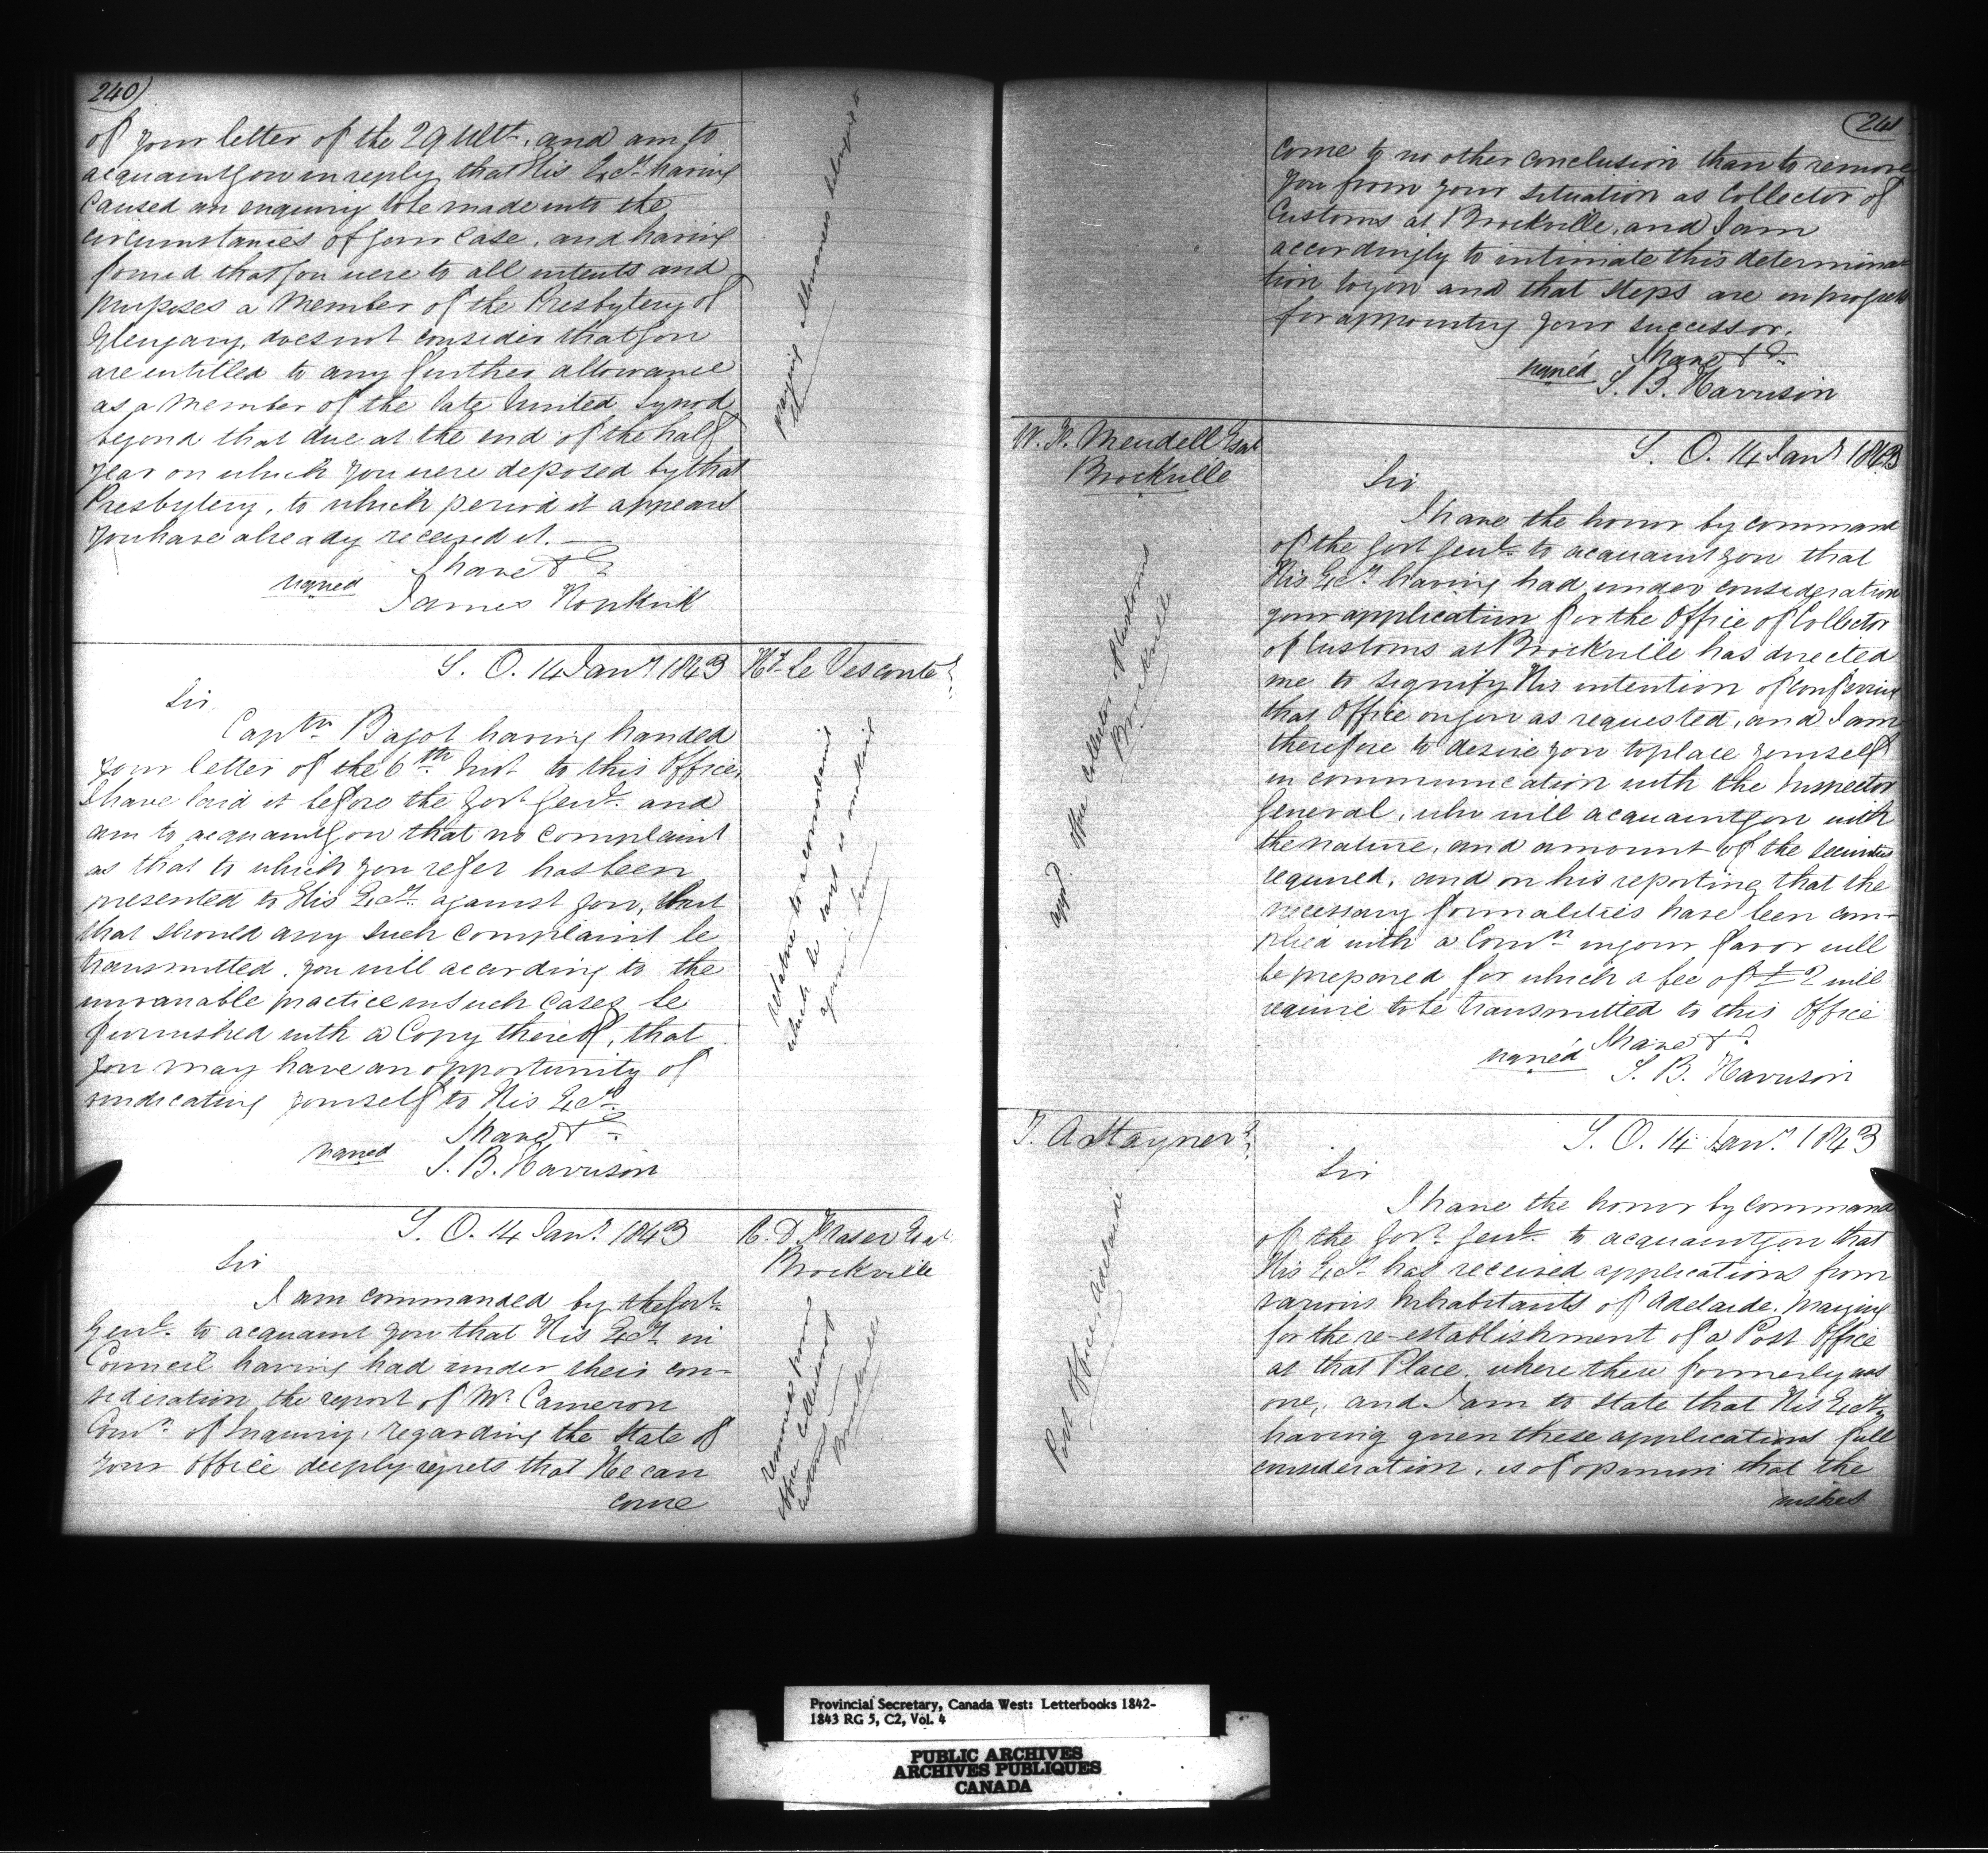 240
of your letter of the 29 Ult. and am to
acquaint you in reply that His Excy. having
Caused an enquiry to be made into the
circumstances of your Case, and having
found that you were to all intents and
purposes a Member of the Presbytery of
Glengary, does not consider that you
are entitled to any further allowance
as a Member of the late United Synod
beyond that due at the end of the half
year on which you were deposed by that
Presbytery, to which period it appears
you have already received it.
I have &c
signed James Hopkirk
praying allowances
S. O. 14 Jany 1843
H. Le Vesconte
Sir
Captn Bagot having handed
your letter of the 6th Inst to this Office,
I have laid it before the Govr. Genl. and
am to acquaint you that no complaint
as that to which you refer has been
presented to His Excy. against you, but
that should any such complaint be
transmitted, you will according to the
invariable practice in such Cases be
furnished with a Copy thereof, that
you may have an opportunity of
vindicating yourself to His Excy.
I have &c
signed S. B. Harrison
relative to a complaint
which he
against him
S. O. 14 Jany. 1843
R. D. Fraser Esqr
Brockville
Sir
I am commanded by the Govr.
Genl. to acquaint you that His Excy. in
Council having had under their con-
sideration the report of Mr. Cameron
Comr. of Inquiry, regarding the State of
your Office deeply regrets that He can
come
removed from
office Collector of
Customs
Brockville
241
Come to no other conclusion than to remove
you from your situation as Collector of
Customs at Brockville, and I am
accordingly to intimate this determina-
tion to you and that steps are in progress
for appointing your successor.
I have &c
signed S. B. Harrison
W. H. Mendell Esqr
Brockville
S. O. 14 Jany 1843
Sir
I have the honor by command
of the Govr Genl. to acquaint you that
His Excy. having had under consideration
your application for the Office of Collector
of Customs at Brockville has directed
me to signify His intention of conferring
that Office on you as requested, and I am
therefore to desire you to place yourself
in communication with the Inspector
General, who will acquaint you with
the nature, and amount of the securities
required, and on his reporting that the
necessary formalities have been com-
plied with a Comn. in your favor will
be prepared for which a fee of £2 will
require to be transmitted to this Office
I have &c
signed S. B. Harrison
appd. Office Collector of Customs
Brockville
T. A. Stayner
S. O. 14 Jany. 1843
Sir
I have the honor by command
of the Govr. Genl. to acquaint you that
His Excy. has received applications from
various Inhabitants of Adelaide, praying
for the re-establishment of a Post Office
at that Place, where there formerly was
one, and I am to state that His Excy.
having given these applications full
consideration, is of opinion that the
wishes
Post Office, Adelaide
Provincial Secretary, Canada West: Letterbooks 1842-
1843 RG 5, C2, Vol. 4
PUBLIC ARCHIVES
ARCHIVES PUBLIQUES
CANADA